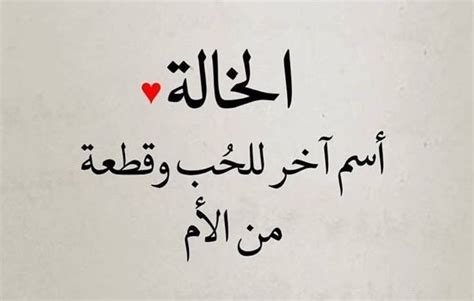 الخالة
أسم آخر للحُب وقطعة
من الأم